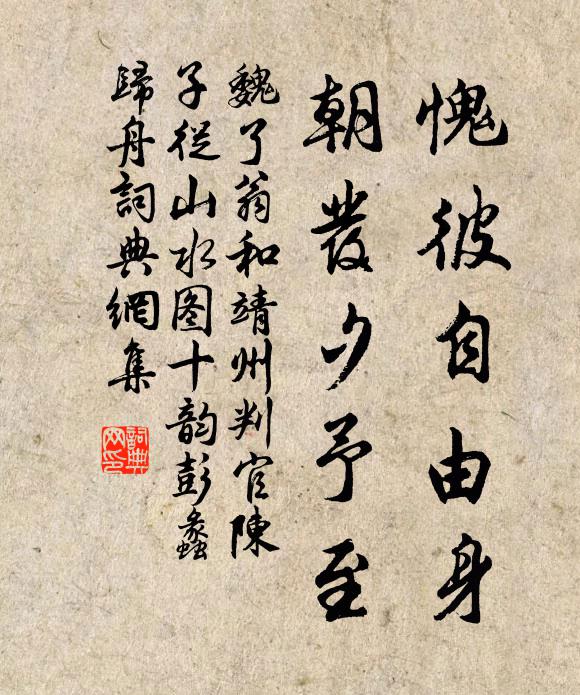 愧彼自由身
朝發夕予至
魏了翁和靖州判官陳
子從山水图十韵彭蠡
歸舟詞典網集
詞典
网印